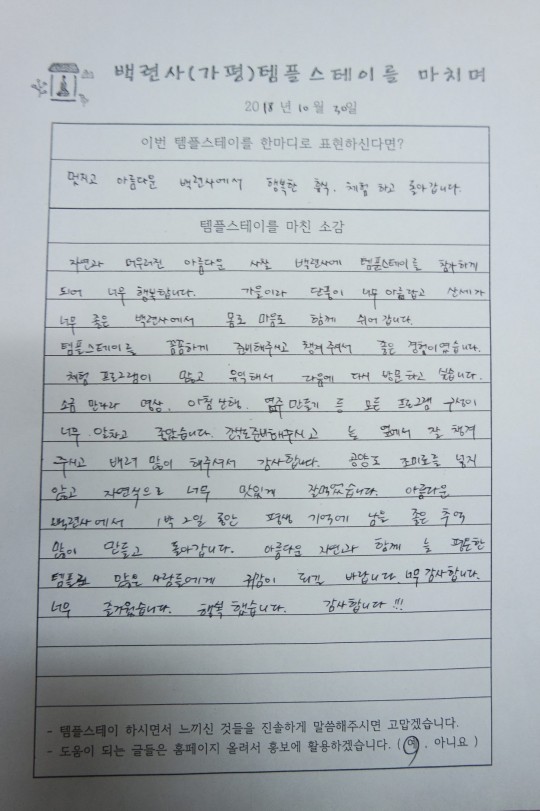 백련사(가평)템플스테이를 마치며
2018년 10월 30일
이번 템플스테이를 한마디로 표현하신다면?
멋지고 아름다운 백련사에서 행복한 휴식, 체험 하고 돌아갑니다.
템플스테이를 마친 소감
자연과 어우러진 아름다운 사찰 백련사에 템플스테이를 참가하게
되어 너무 행복합니다. 가을이라 단풍이 너무 아름답고 산세가
너무 좋은 백련사에서 몸도 마음도 함께 쉬어 갑니다.
템플스테이를 꼼꼼하게 준비해주시고 챙겨주셔서 좋은 경험이였습니다.
체험 프로그램이 많고 유익해서 다음에 다시 방문하고 싶습니다.
소금 만다라 명상, 아침 산행, 염주 만들기 등 모든 프로그램 구성이
너무 알차고 좋았습니다. 간식도 준비해주시고 늘 옆에서 잘 챙겨
주시고 배려 많이 해주셔서 감사합니다. 공양도 조미료를 넣지
않고 자연식으로 너무 맛있게 잘먹었습니다. 아름다운
백련사에서 1박 2일 동안 평생 기억에 남을 좋은 추억
많이 만들고 돌아갑니다. 아름다운 자연과 함께 늘 평온한
템플로 많은 사람들에게 귀감이 되길 바랍니다 너무 감사합니다.
너무 즐거웠습니다. 행복했습니다. 감사합니다!!!
- 템플스테이 하시면서 느끼신 것들을 진솔하게 말씀해주시면 고맙겠습니다.
- 도움이 되는 글들은 홈페이지 올려서 홍보에 활용하겠습니다. ( 예 . 아니요 )